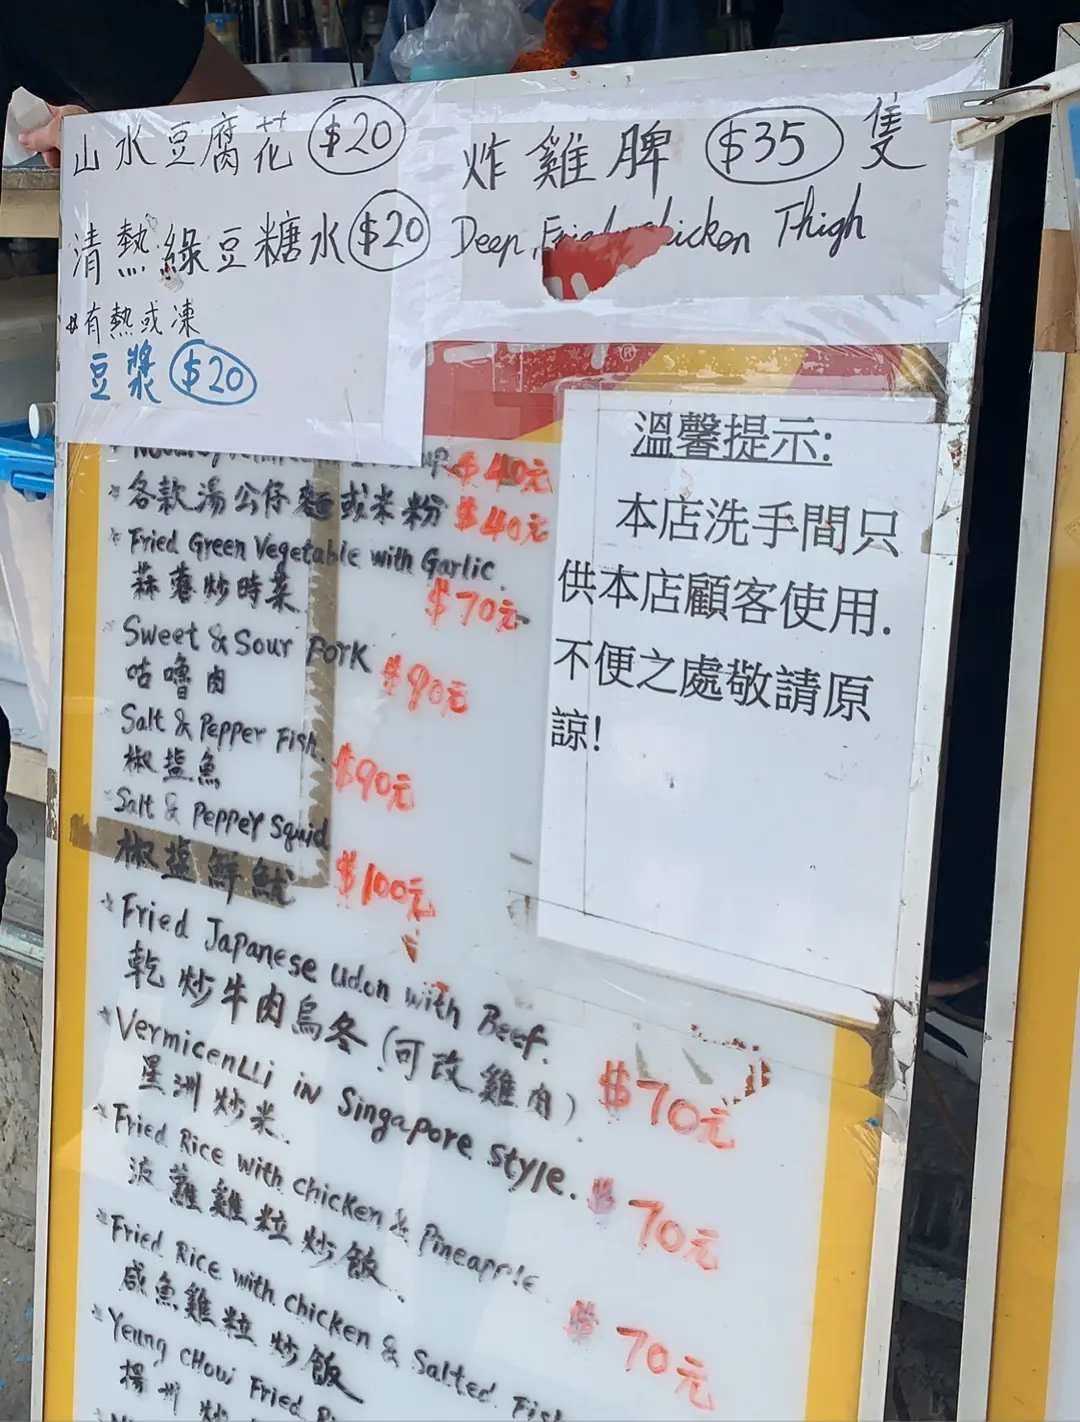 山水豆腐花 $20
清熱綠豆糖水 $20
*有熱或凍
豆漿 $20
炸雞髀 $35 隻
Deep Fried Chicken Thigh
溫馨提示:
本店洗手間只
供本店顧客使用.
不便之處敬請原
諒!
$40元
各款湯公仔麵或米粉 $40元
Fried Green Vegetable with Garlic
蒜蓉炒時菜 $70元
Sweet & Sour Pork
咕嚕肉 $90元
Salt & Pepper Fish
椒盐魚 $90元
Salt & Pepper Squid
椒盐鮮魷 $100元
Fried Japanese Udon with Beef.
乾炒牛肉烏冬(可改雞肉) $70元
Vermicelli in Singapore style.
星洲炒米. $70元
Fried Rice with chicken & Pineapple
菠蘿雞粒炒飯. $70元
Fried Rice with chicken & Salted Fish
咸魚雞粒炒飯
Yeung Chow Fried
揚州炒